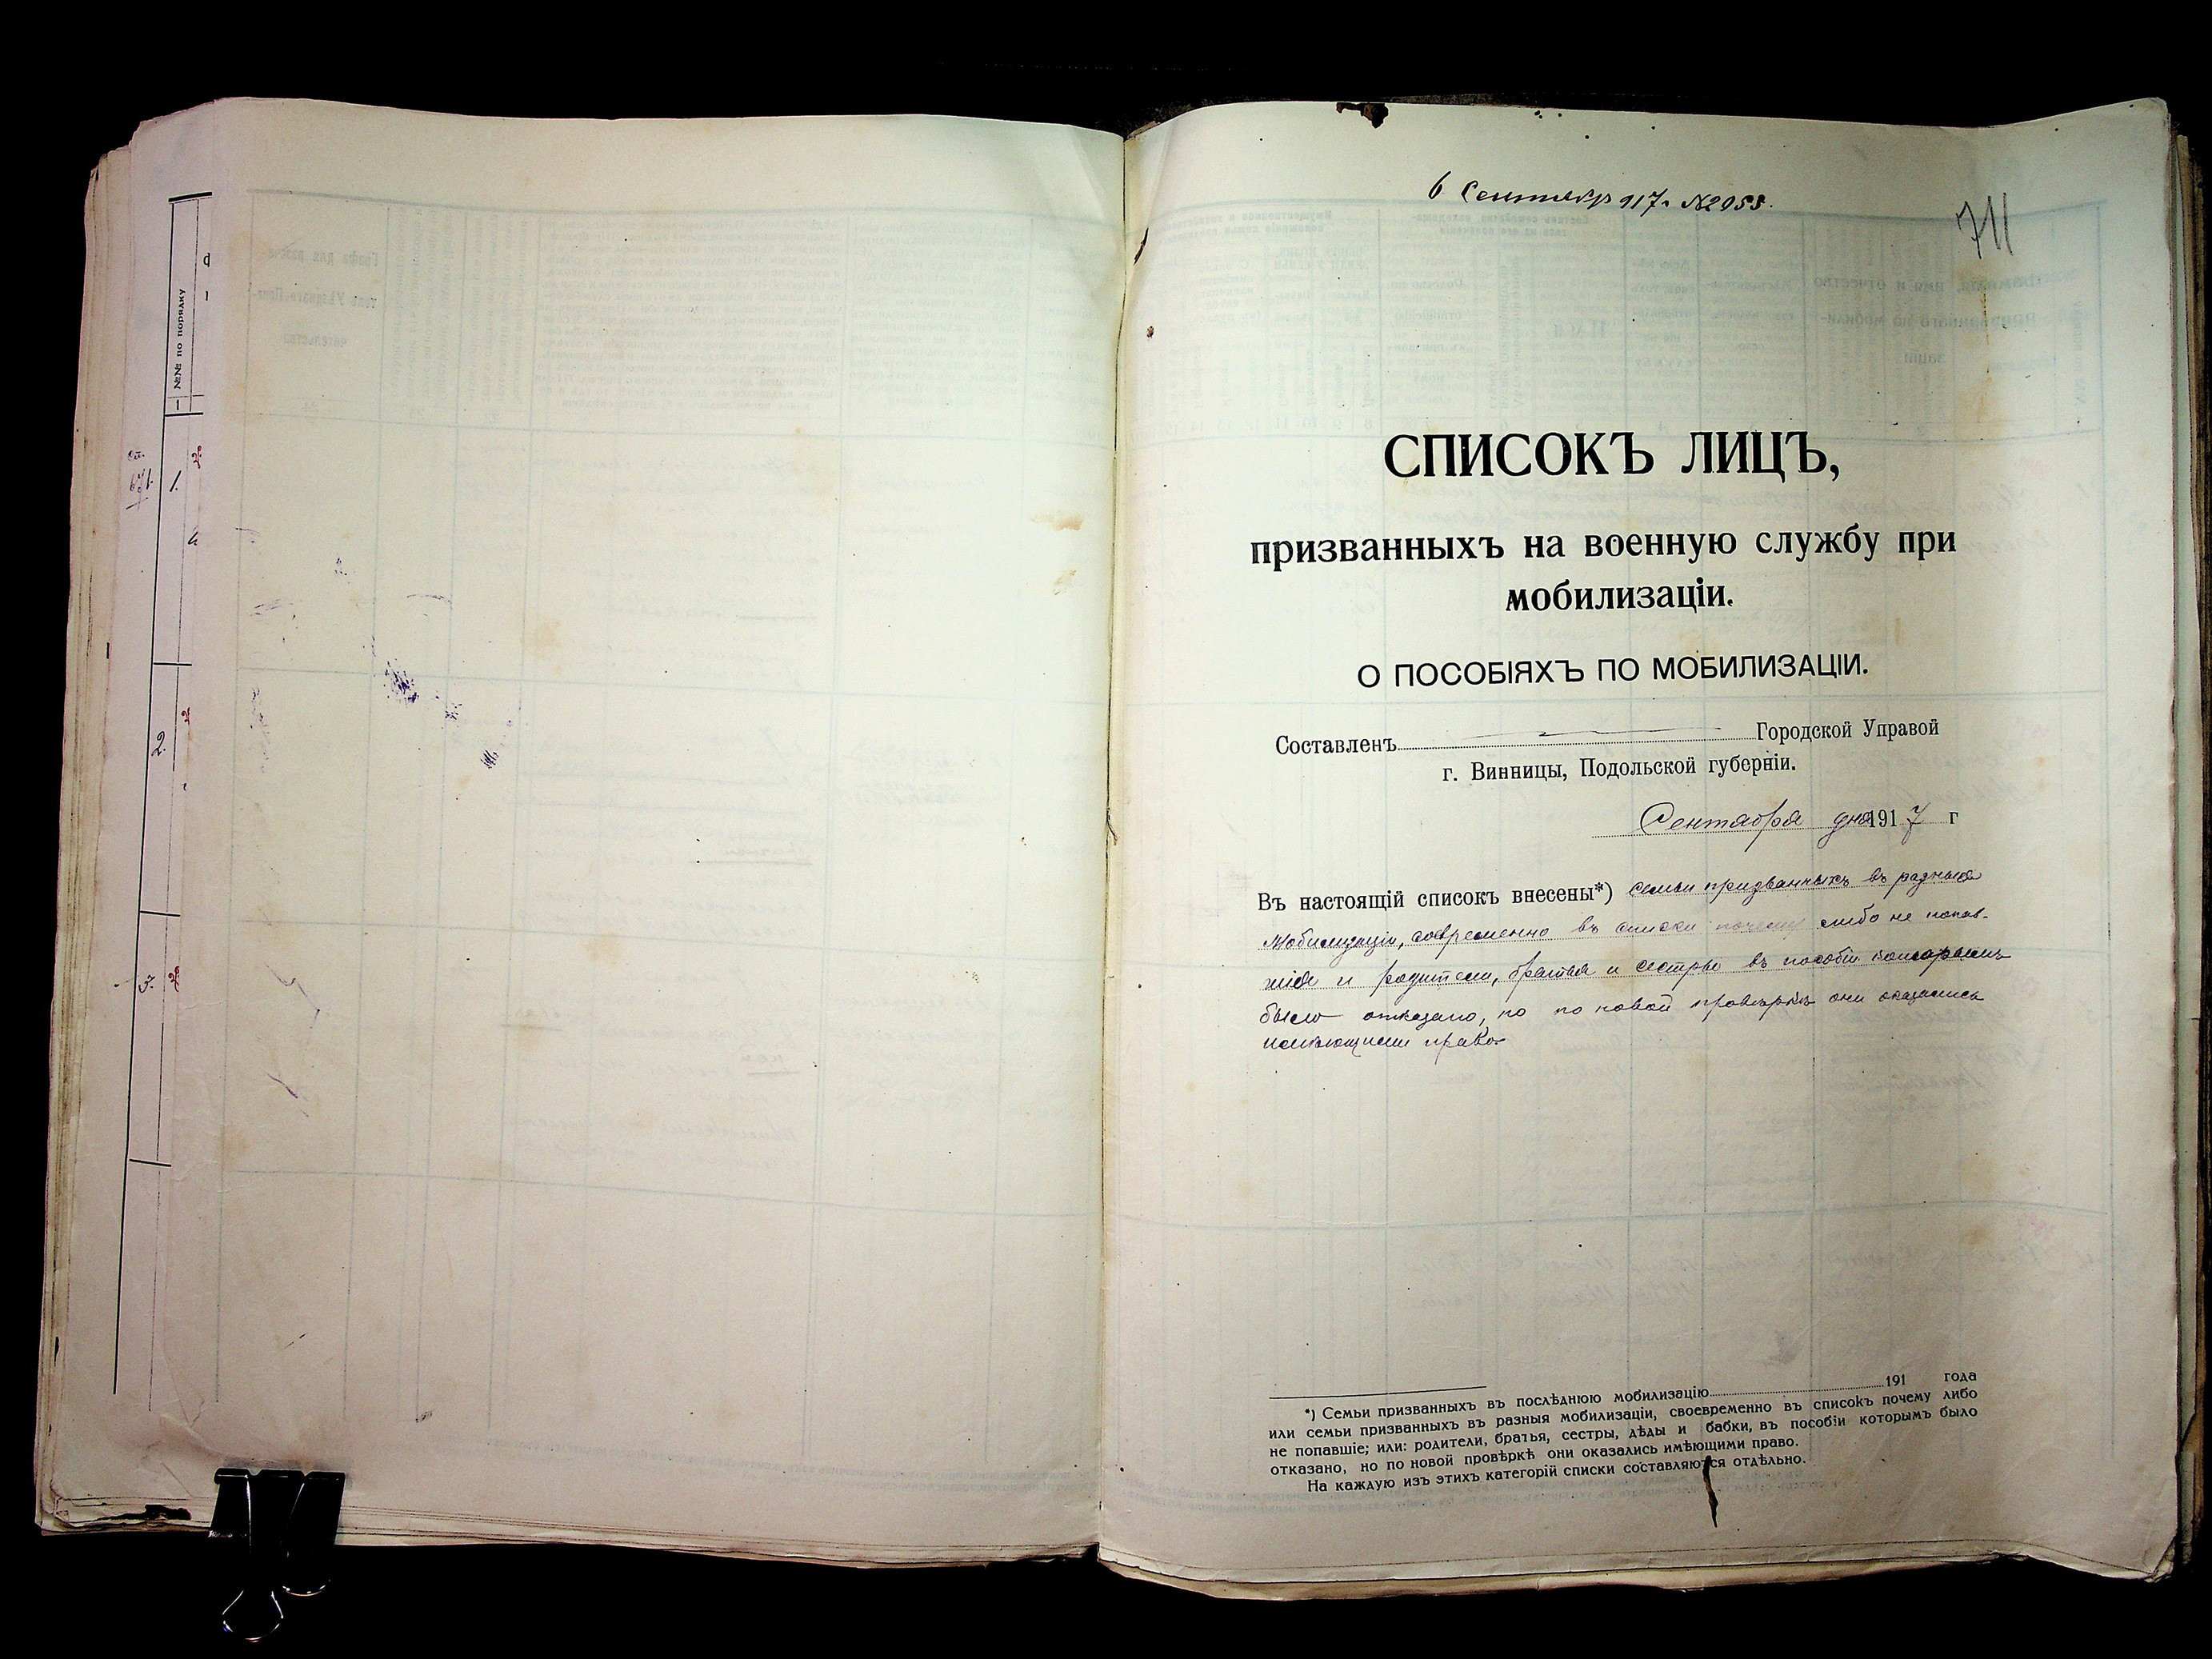 №№ по порядку
1
671.
1.
2.
3.
6 Сентября 917 г. №2955.
711
СПИСОКЪ ЛИЦЪ,
призванныхъ на военную службу при
мобилизаціи.
О ПОСОБІЯХЪ ПО МОБИЛИЗАЦІИ.
Составленъ Городской Управой
г. Винницы, Подольской губерніи.
Сентября дня 1917 г
Въ настоящій список внесены*) семьи призванныхъ въ разныя
мобилизаціи, своевременно въ списки почему либо не попав-
шія и родители, братья и сестры въ пособіи которымъ
было отказано, но по новой провѣркѣ они оказались
имѣющими право.
*) Семьи призванныхъ въ послѣднюю мобилизацію 191 года
или семьи призванныхъ въ разныя мобилизаціи, своевременно въ списокъ почему либо
не попавшіе; или: родители, братья, сестры, дѣды и бабки, въ пособіи которымъ было
отказано, но по новой провѣркѣ они оказались имѣющими право.
На каждую изъ этихъ категорій списки составляются отдѣльно.